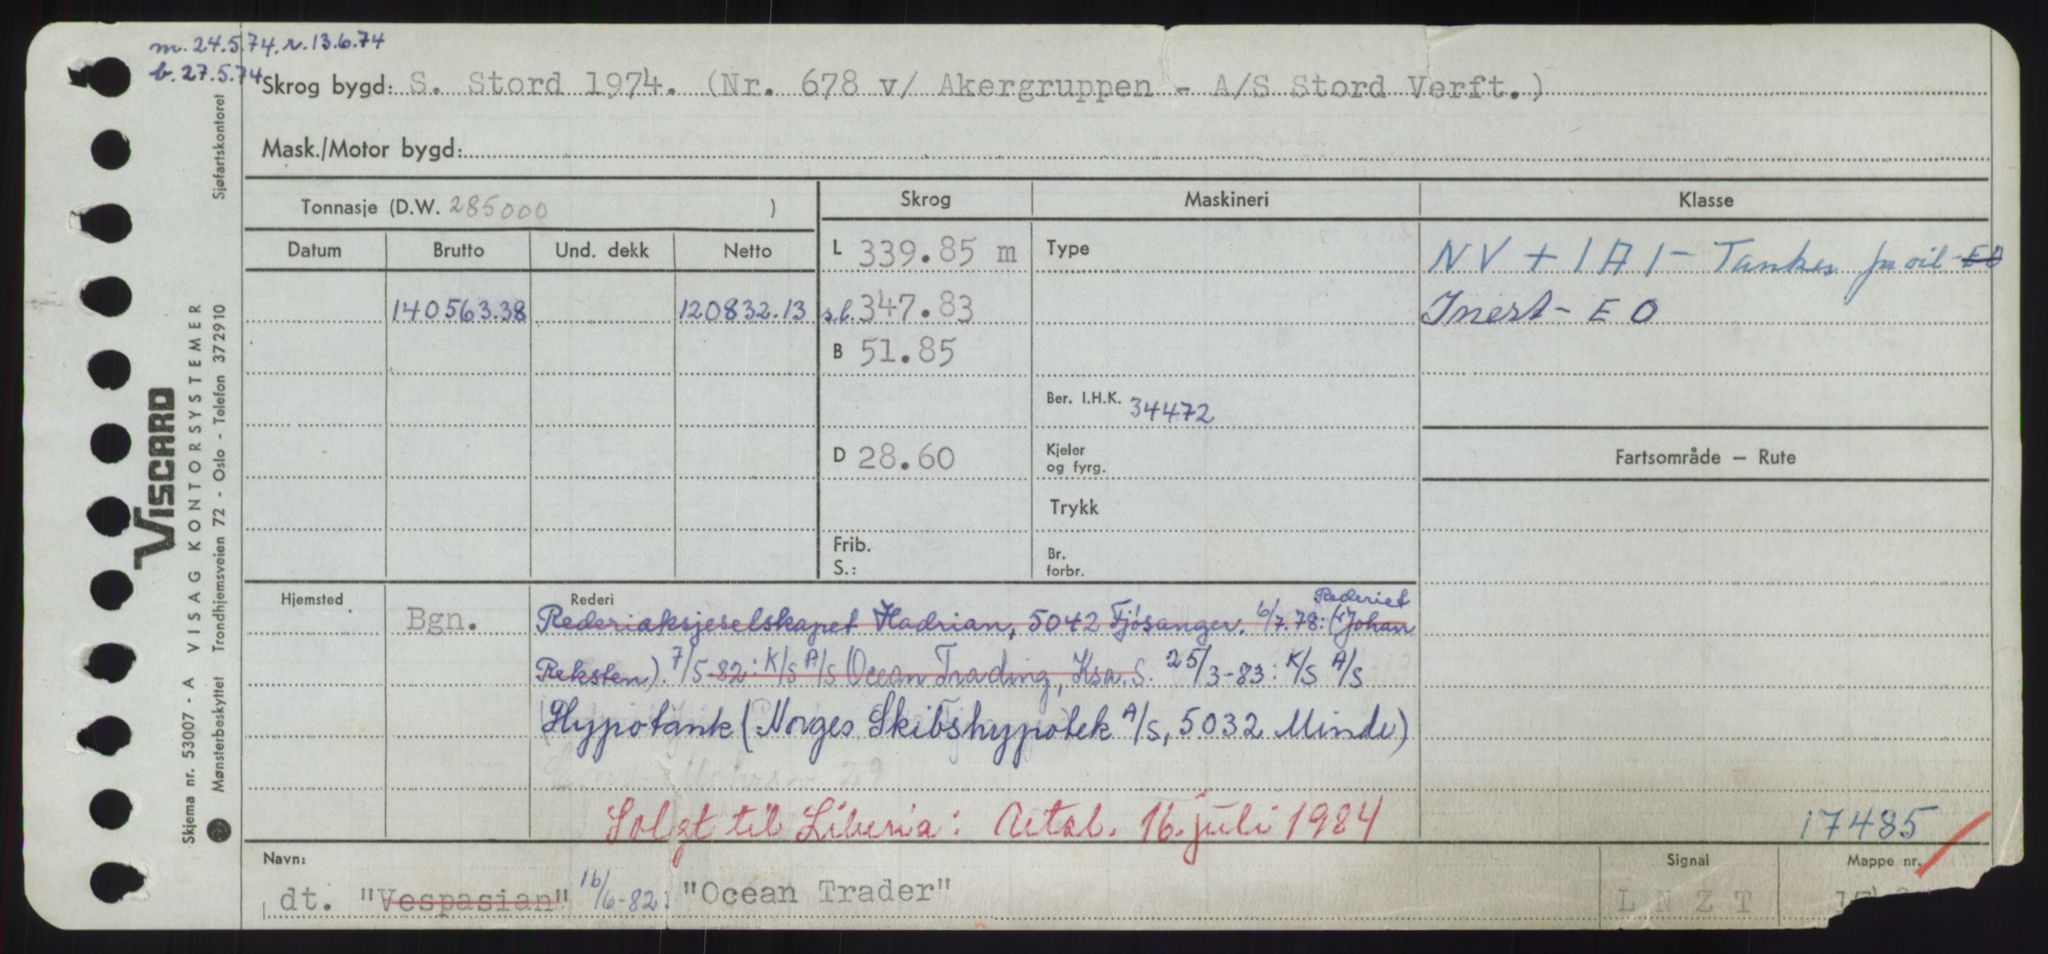 m. 24.5.74. r. 13.6.74
b. 27.5.74
Skrog bygd: S. Stord 1974. (Nr. 678 v/ Akergruppen - A/S Stord Verft.)
Mask./Motor bygd:
Tonnasje (D.W. 285000 )
Skrog Maskineri Klasse
Datum Brutto Und. dekk Netto
L 339.85 m Type NV + 1A1 - Tanker for oil EO
140563.38 120832.13 s.l. 347.83 Inert - EO
B 51.85
Ber. I.H.K. 34472
D 28.60 Kjeler og fyrg. Fartsområde — Rute
Trykk
Frib. Br.
S.: forbr.
Hjemsted Rederi
Bgn. Rederiaksjeselskapet Hadrian, 5042 Fjösanger. 6/7.78: (Rederiet Johan
Reksten). 7/5-82: K/S A/S Ocean Trading, Ksa. S. 25/3-83: K/S A/S
Hypotank (Norges Skibshypotek A/S, 5032 Minde)
Solgt til Liberia: Attal. 16. juli 1984
17485
Navn: Signal Mappe nr.
dt. "Vespasian" 16/6-82: "Ocean Trader" L N Z T
Sjøfartskontoret
VISCARD
VISAG KONTORSYSTEMER
Trondhjemsveien 72 - Oslo - Telefon 372910
Skjema nr. 53007 - A
Mønsterbeskyttet